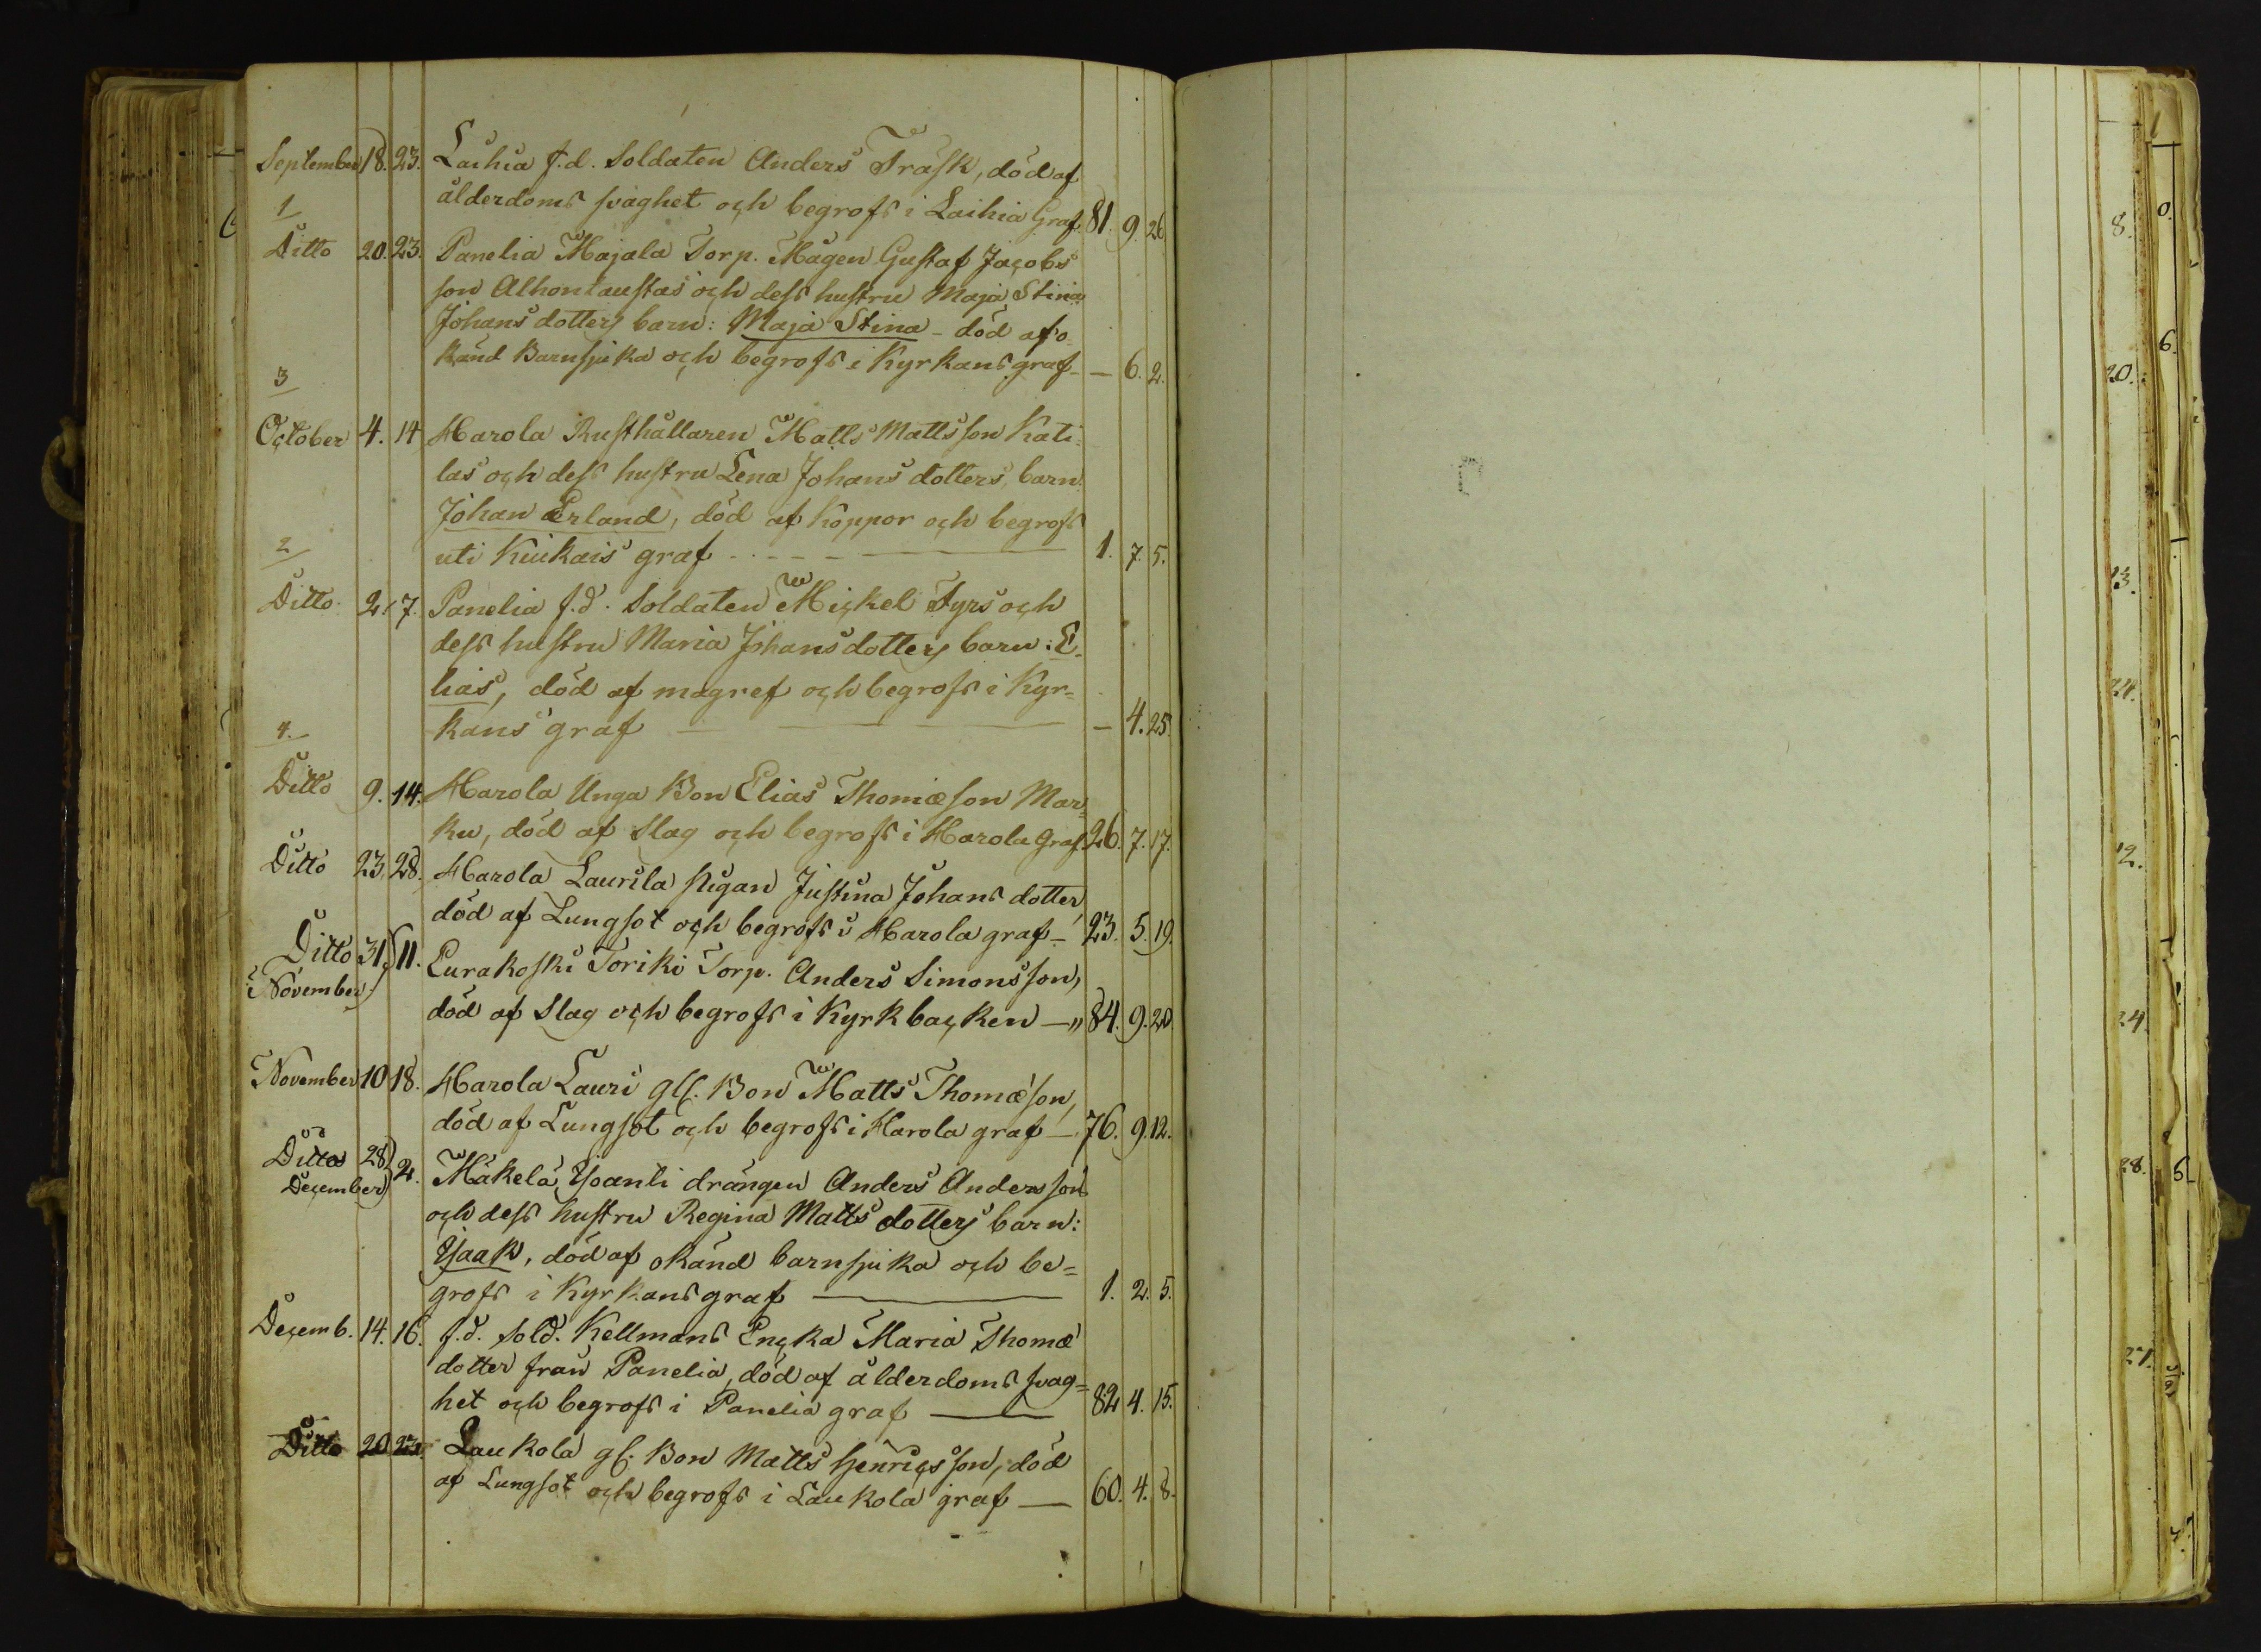 September 18. 23. Laihia f.d. Soldaten Anders Träsk, död af
ålderdoms svaghet och begrofs i Laihia Graf. 81. 9. 26.
1
Ditto 20. 23. Panelia Majala Torp. Mågen Gustaf Jacobs
son Alhontaustas och dess hustru Maja Stina
Johans dotters barn: Maja Stina - död af o-
känd Barnsjuka och begrofs i Kyrkans graf - — 6. 2.
3
October 4. 14 Harola Rusthållaren Matts Mattsson Kati-
las och dess hustru Lena Johans dotters, barn
Johan Erland, död af Koppor och begrofs
uti Kiukais graf - - - - 1. 7. 5.
2
Ditto 2. 7. Panelia f.d. Soldaten Mickel Tyrs och
dess hustru Maria Johansdotters barn: E-
lias, död af magref och begrofs i Kyr=
kans graf — — 4. 25.
4.
Ditto 9. 14. Harola Unga Bon Elias Thomæson Mar=
ku, död af Slag och begrofs i Harola Graf. 26. 7. 17.
Ditto 23. 28. Harola Laurila Pigan Justina Johans dotter,
död af Lungsot och begrofs i Harola graf - 23. 5. 19.
Ditto 31. 11. Eurakoski Toriki Torp. Anders Simonsson,
November
död af Slag och begrofs i Kyrkbacken — " 84. 9. 20.
November 10 18. Harola Lauri gl. Bon Matts Thomæson,
död af Lungsot och begrofs i Harola graf — 76. 9. 12.
Ditto 28 2. Mäkelä Yoanti drängen Anders Andersson
December
och dess hustru Regina Matts dotters barn:
Isaak, död af okänd barnsjuka och be=
grofs i Kyrkans graf — 1. 2. 5.
Decemb. 14. 16. f.d. Sold. Kellmans Encka Maria Thomæ
dotter från Panelia, död af ålderdoms svag=
het och begrofs i Panelia graf — 82 4. 15.
Ditto 20 23. Laukola gl. Bon Matts Henricsson, död
af Lungsot och begrofs i Laukola graf — 60. 4. 8.
8.
20.
13.
24.
12.
24.
28.
27.